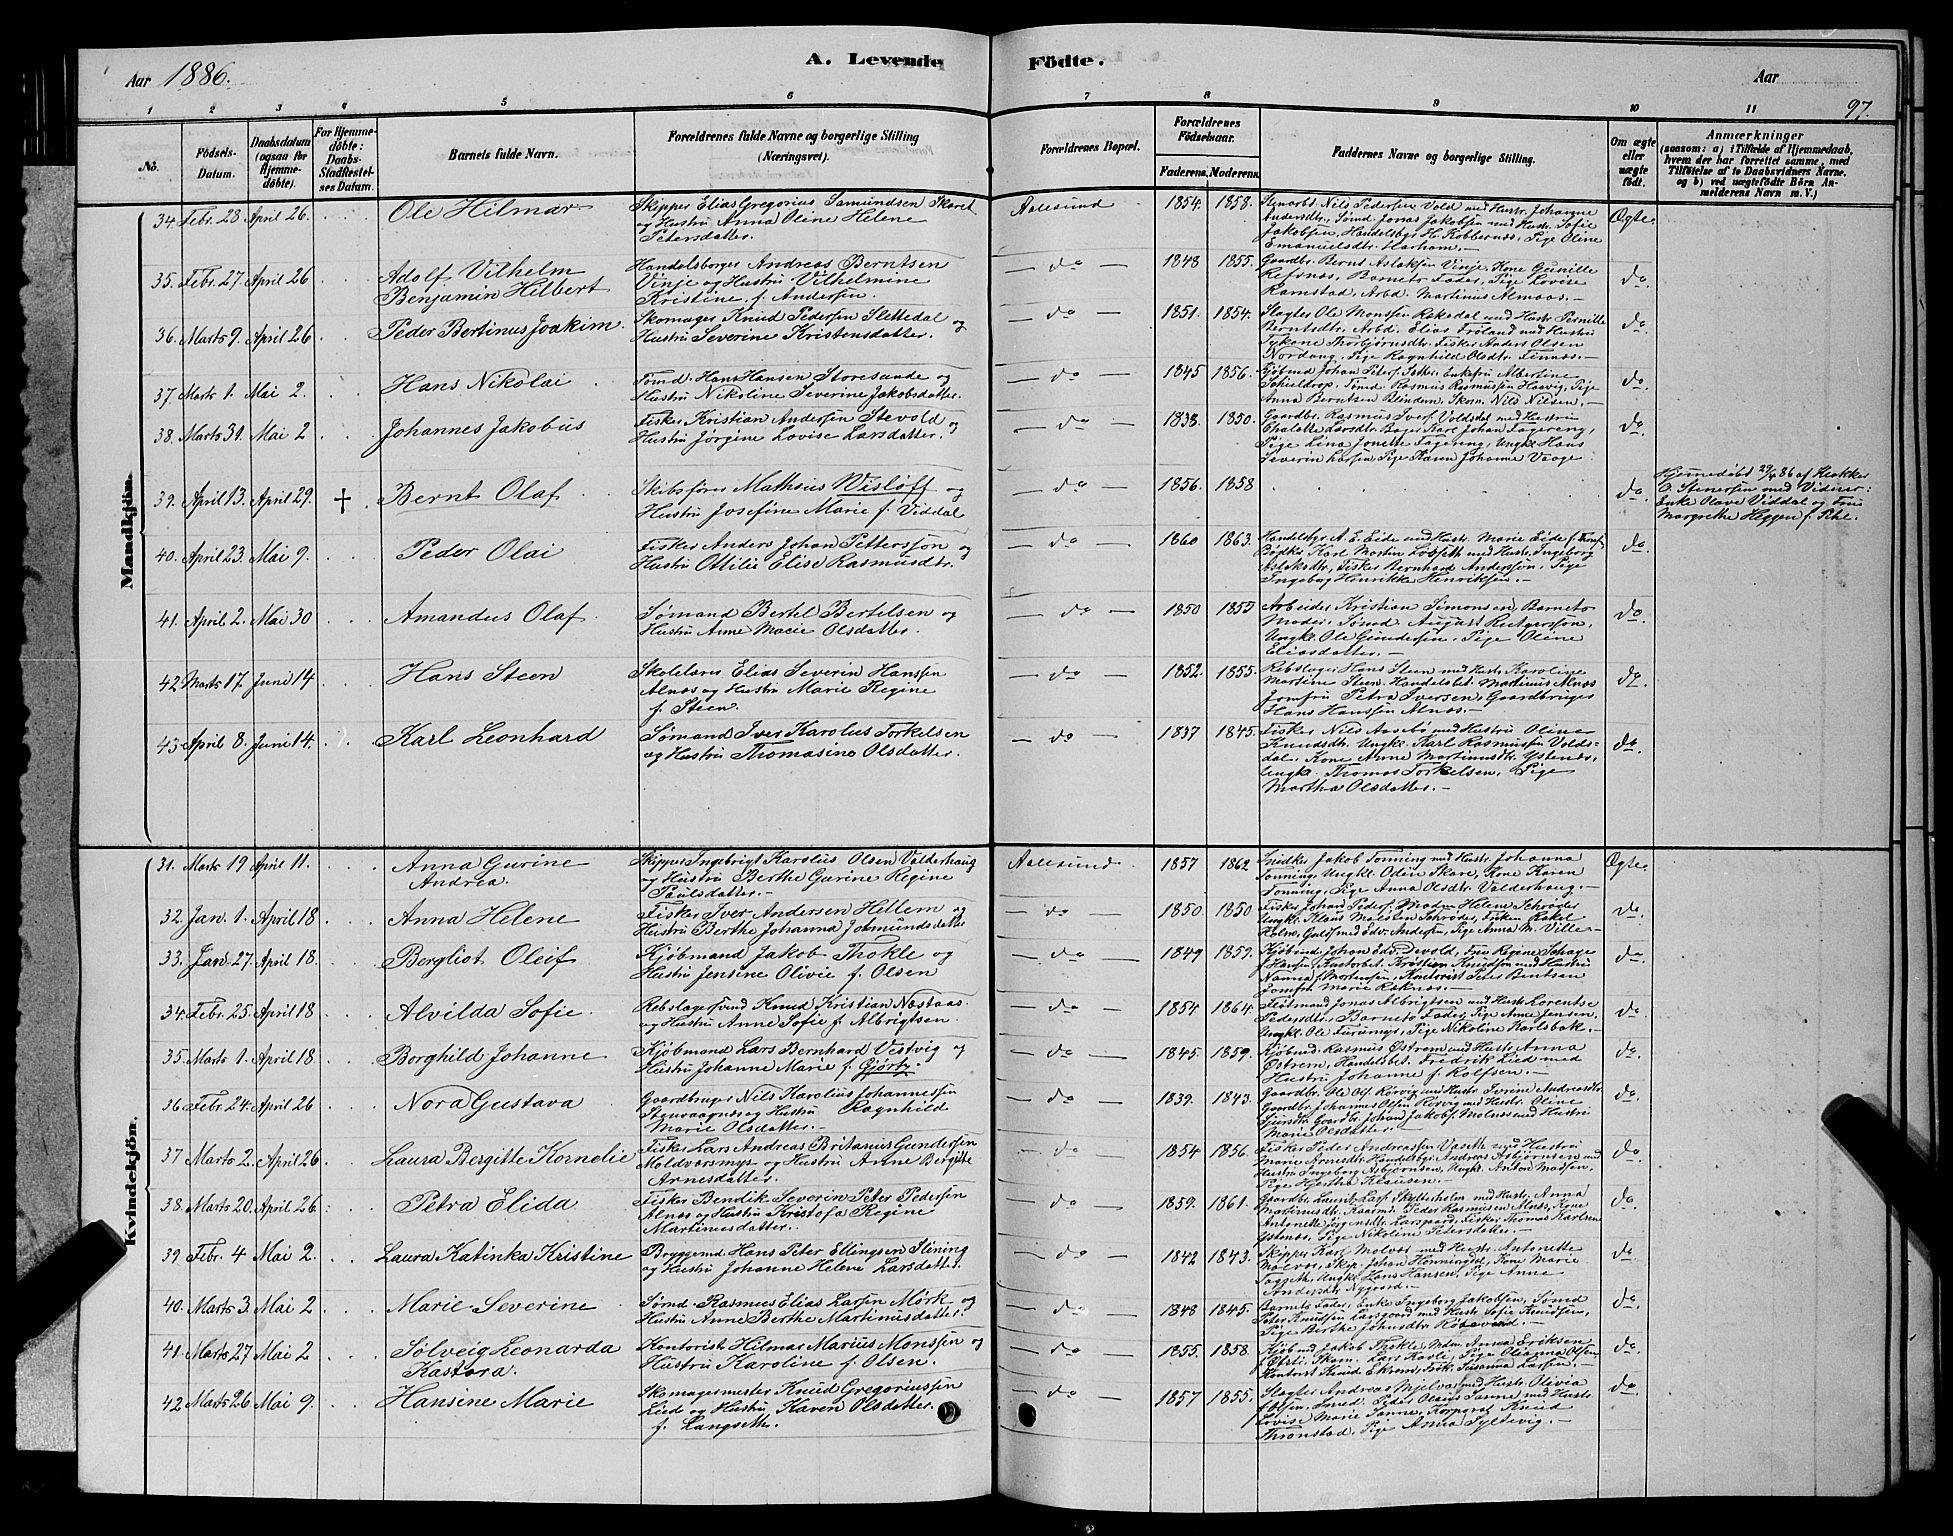 Aar 1886. A. Levende Fødte. Aar 97.
1 2 3 4 5 6 7 8 9 10 11
No. Födsels-Datum. Daabsdatum (ogsaa for Hjemme-döbte). For Hjemme-döbte: Daabs-Stadfæstel-ses Datum. Barnets fulde Navn. Forældrenes fulde Navne og borgerlige Stilling (Næringsvei). Forældrenes Bopæl. Forældrenes Födselsaar. Faderens. Moderens. Faddernes Navne og borgerlige Stilling. Om ægte eller uægte födt. Anmærkninger (saasom: a) i Tilfælde af Hjemmedaab, hvem der har forrettet samme, med Tilföielse af to Daabsvidners Navne, og b) ved uægtefödte Börn An-melderens Navn m. V.)
Mandkjön.
34. Febr. 28 April 26. Ole Hilmar Skipper Elias Gregorius Samundsen Skaret Aalesund 1854. 1858. Nils Pedersen Vold med Hustr. Johanne Ægte.
og Hustru Anna Oline Helene Andersdtr., Sømd. Jonas Jakobsen med Hustr. Sofie
Petersdatter. Jakobsen, Handelsbgr. H. Kobbernæs, Pige Oline
Emanuelsdtr. Harham.
35. Febr. 27. April 26 Adolf Vilhelm Handelsborger Andreas Berntsen do 1848 1855. Gaardbr. Bernt Aslaksen Vinje, Kone Gunille do.
Benjamin Hilbert Vinje og Hustru Vilhelmine Refsnæs, Barnets Fader, Pige Lovise
Kristine f. Andersen. Ramstad, Arbd. Martinus Almaas.
36. Marts 9. April 26 Peder Bertinus Joakim. Skomager Knud Pedersen Slettedal og do 1851. 1854. Slagter Ole Monsen Reksdal med Hustr. Pernille do.
Hustru Severine Kristensdatter. Berntsdtr. Arbd. Elias Frøland med Hustru
Thorbjørnsdtr. Fisker Anders Olsen
Nordang, Pige Ragnhild Olsdtr. Finnæs.
37 Marts 1. Mai 2. Hans Nikolai Sømd. Hans Hansen Storesande og do 1845 1856. Kjøbmd Johan Peders. Enkefru Albertine do.
Hustru Nikoline Severine Jakobsdatter. Schieldrop. Sømd Rasmus Rasmussen Haavig, Pige
Anna Berntsen Blindem, Skom. Nils Nilsen.
38. Marts 31. Mai 2 Johannes Jakobus Fisker Kristian Andersen Stevold og do 1838. 1850. Gaardbr. Rasmus Ivers. Voldsdal med Hustru do.
Hustru Jørgine Lovise Larsdatter. Chalotte Larsdtr. Bager Karl Johan Fagereng,
Pige Lina Jonette Fagereng, Ungk. Hans
Severin Larsen, Pige Karen Johanne Vaage.
39. April 13. April 29. † Bernt Olaf Skibsfører Mathias Wisløff og do 1856. 1858 do. Hjemmedöbt 29/4 86 af Klokker
Hustru Josefine Marie f. Viddal O. Stenersen med Vidner:
Enke Olave Viddal og Frue
Margrethe Heggen f. Pihl.
40. April 23. Mai 9. Peder Olai Fisker Anders Johan Petterssøn og do 1860 1863. Handelsbgr. A. E. Eide med Hustr. Marie Eide f. do.
Hustru Ottilie Elise Rasmusdtr. Bødker Karl Martin Lobseth med Hustr. Ingeborg
Aslaksdtr., Fisker Bernhard Anderssøn, Pige
Ingebog Henrikke Henriksen.
41. April 2. Mai 30 Amandus Olaf. Sømand Bertel Bertelsen og do 1850 1855 Arbeider Kristian Simonsen, Barnets do.
Hustru Anne Marie Olsdatter. Moder, Sømd. August Rutgerssøn,
Ungk. Ole Gundersen, Pige Oline
Eliasdatter.
42 Marts 17. Juni 14 Hans Steen Skolelærer Elias Severin Hanssen do 1852. 1855. Rebslager Hans Steen med Hustr. Karoline do.
Alnæs og Hustru Marie Regine Martine Steen, Handelsbet. Martinus Alnæs
f. Steen. Jomfru Petra Iversen, Gaardbruger
Hans Hanssen Alnæs.
43 April 8. Juni 14. Karl Leonhard Sømand Iver Karolus Torkelsen do 1837 1845. Fisker Nils Aasebø med Hustru Oline do.
og Hustru Thomasine Olsdatter. Knudsdtr. Ungk. Karl Rasmussen Volds-
dal, Kone Anne Martinusdtr. Ystenæs,
Ungk. Thomas Torkelsen, Pige
Martha Olsdatter.
Kvindekjön.
31. Marts 19 April 11. Anna Gurine Skipper Ingebrigt Karolus Olsen Valderhaug Aalesund. 1857 1862 Snidker Jakob Tonning med Hustr. Johanna Ægte.
Andrea. og Hustru Berthe Gurine Regine Tonning, Ungk. Odin Skare, Kone Karen
Paulsdatter. Tonning, Pige Anna Olsdtr. Valderhaug.
32. Jan. 1. April 18 Anna Helene Fisker Iver Andersen Hellem og do 1850. 1850 Fisker Johan Peders., Madm Helene Schrøder do.
Hustru Berthe Johanna Josmundsdatter Ungk. Klaus Molesten Schrøder, Rakel
Holm, Guldsmed Edv. Andersen, Pige Anna M. Ville
33. Jan. 27. April 18. Bergliot Oleif Kjøbmand Jakob Thokle og do 1849 1859. Kjøbmd. Johan Edv. Devold, Fru Regine Schage do.
Hustru Jensine Olivie f. Olsen f. Hansen, Kontorbet. Kristian Knudsen med Hustru
Nanna f. Mortensen, Kontorist Peter Berntsen
Jomfru Marie Raknæs.
34. Febr. 25. April 18 Alvilda Sofie. Rebslagersvend Knud Kristian Næstaas. do 1854 1864. Fløtmand Jonas Albrigtsen med Hustr. Lorentse do
og Hustru Anne Sofie f. Albrigtsen. Pedersdtr., Barnets Fader, Pige Anne Jensen,
Ungk. Ole Furumyr, Pige Nikoline Karlsbak.
35. Marts 1. April 18 Borghild Johanne Kjøbmand Lars Bernhard Vestvig og do 1845. 1859. Kjøbmd. Rasmus Østrem med Hustr. Anna do.
Hustru Johanne Marie f. Gjørtz. Østrem, Handelsbet. Fredrik Lied med
Hustru Johanne f. Rolfsen.
36 Febr. 24. April 26 Nora Gustava Gaardbruger Nils Karolius Johannessen do 1839. 1843. Gaardbr. Ole Ols. Rørvig med Hustr. Serine Andreasdtr. do.
Stenvaagnæs og Hustru Ragnhild Gaardbr. Johannes Olsen Rørvig med Hustr. Oline
Marie Olsdatter. Sjursdtr. Gaardbr. Johan Jakobs. Molnæs med Hustru
Marie Olsdatter.
37 Marts 2. April 26. Laura Bergitte Kornelie Fisker Lars Andreas Britanus Gundersen do 1854 1856. Fisker Peder Andreassen Vaseth med Hustru do.
Moldværsmyr og Hustru Anne Bergitte Marie Arnesdtr. Handelsbgr. Andreas Asbjørnsen med
Arnesdatter. Hustru Ingeborg Asbjørnsen, Ungk. Anton Madsen,
Pige Hertha Klausen.
38. Marts 20. April 26. Petra Elida Fisker Bendik Severin Peter Pedersen do 1859. 1861. Gaardbr. Laurits Lars. Skytterholm med Hustr. Anna do
Alnæs og Hustru Kristofa Regine Martinusdtr. Kaarmd. Peder Rasmussen Alnæs, Kone
Martinusdatter. Antonette Jørgensdtr. Larsgaard, Fisker Thomas Karlsen
Ystenæs, Pige Nikoline Petersdatter.
39 Febr. 4 Mai 2. Laura Katinka Kristine Bryggemd. Hans Peter Ellingsen Slining do 1842 1843. Skipper Karl Molvær med Hustr. Antonette do.
og Hustru Johanne Helene Larsdatter. Molvær, Skip. Johan Henningdal, Kone Marie
Ungk. Hans Hansen, Pige Anne
Andersdtr. Nygaard.
40. Marts 3. Mai 2 Marie Severine Sømd. Rasmus Elias Larsen Mørk og do 1848 1845. Barnets Fader, Enke Ingeborg Jakobsen, Sømd do.
Hustru Anne Berthe Martinusdatter. Peter Knudsen Larsgaard med Hustr. Sofie Knudsen,
Pige Berthe Johnsdtr.
41. Marts 27 Mai 2 Sölveig Leonarda Kontorist Hilmar Marius Monssen og do 1855. 1858. Kjøbmd Jakob Thokle, Mdm. Anna Eriksen do.
Kastora. Hustru Karoline f. Olsen. Skom. Lars Kavli, Pige Olianna Olsen,
Kontorist Knud Ekrem, Frøk. Susanna Larsen.
42 Marts 26 Mai 9. Hansine Marie Skomagermester Knud Gregoriussen do 1857 1855. Slagter Andreas Mjelva med Hustr. Olivia do.
Lied og Hustru Karen Olsdatter f. Olsen. Smed. Peder Olaus Sanne med Hustr.
f. Langsetter. Lovise Marie Sanne, Korporal Knud
Thronstad, Pige Anna Syltevig.